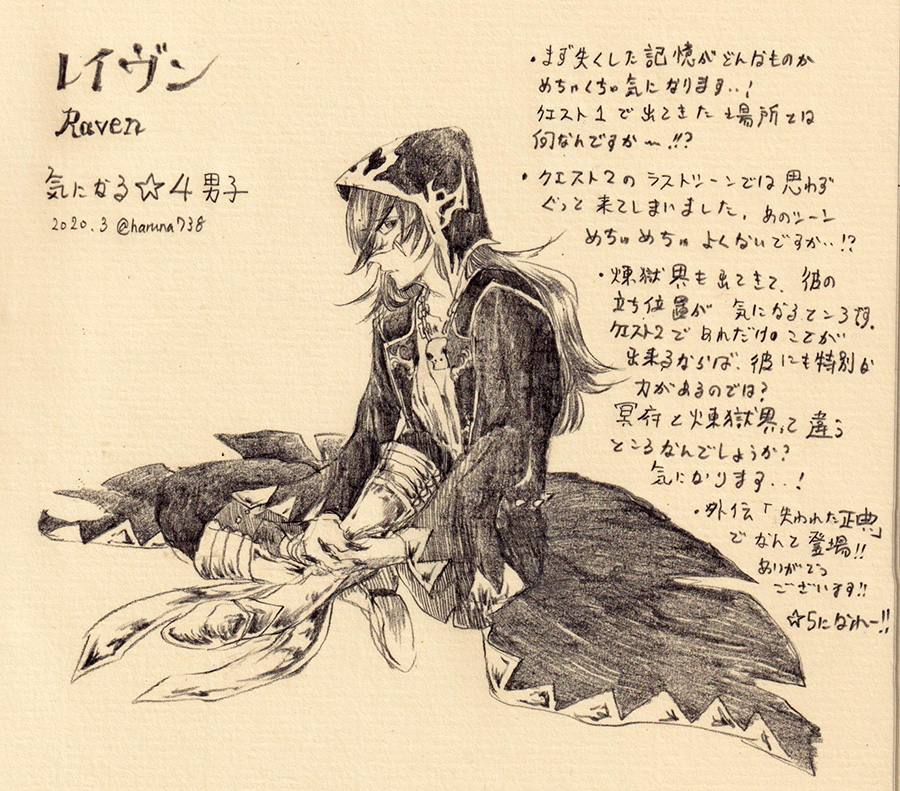 レイヴン
Raven
気になる☆4男子
2020.3 @haruna738
・まず失くした記憶がどんなものか
めちゃくちゃ気になります‥!
クエスト1で出てきた場所とは
何なんですか〜!!?
・クエスト2のラストシーンでは思わず
ぐっと来てしまいました。あのシーン
めちゃめちゃよくないですか‥!?
・煉獄界も出てきて、彼の
立ち位置が気になるところです。
クエスト2であれだけのことが
出来るならば、彼にも特別な
力があるのでは?
冥府と煉獄界って違う
ところなんでしょうか?
気になります‥!
・外伝「失われた正典」
でなんと登場!!
ありがとう
ございます!!
☆5になれー!!